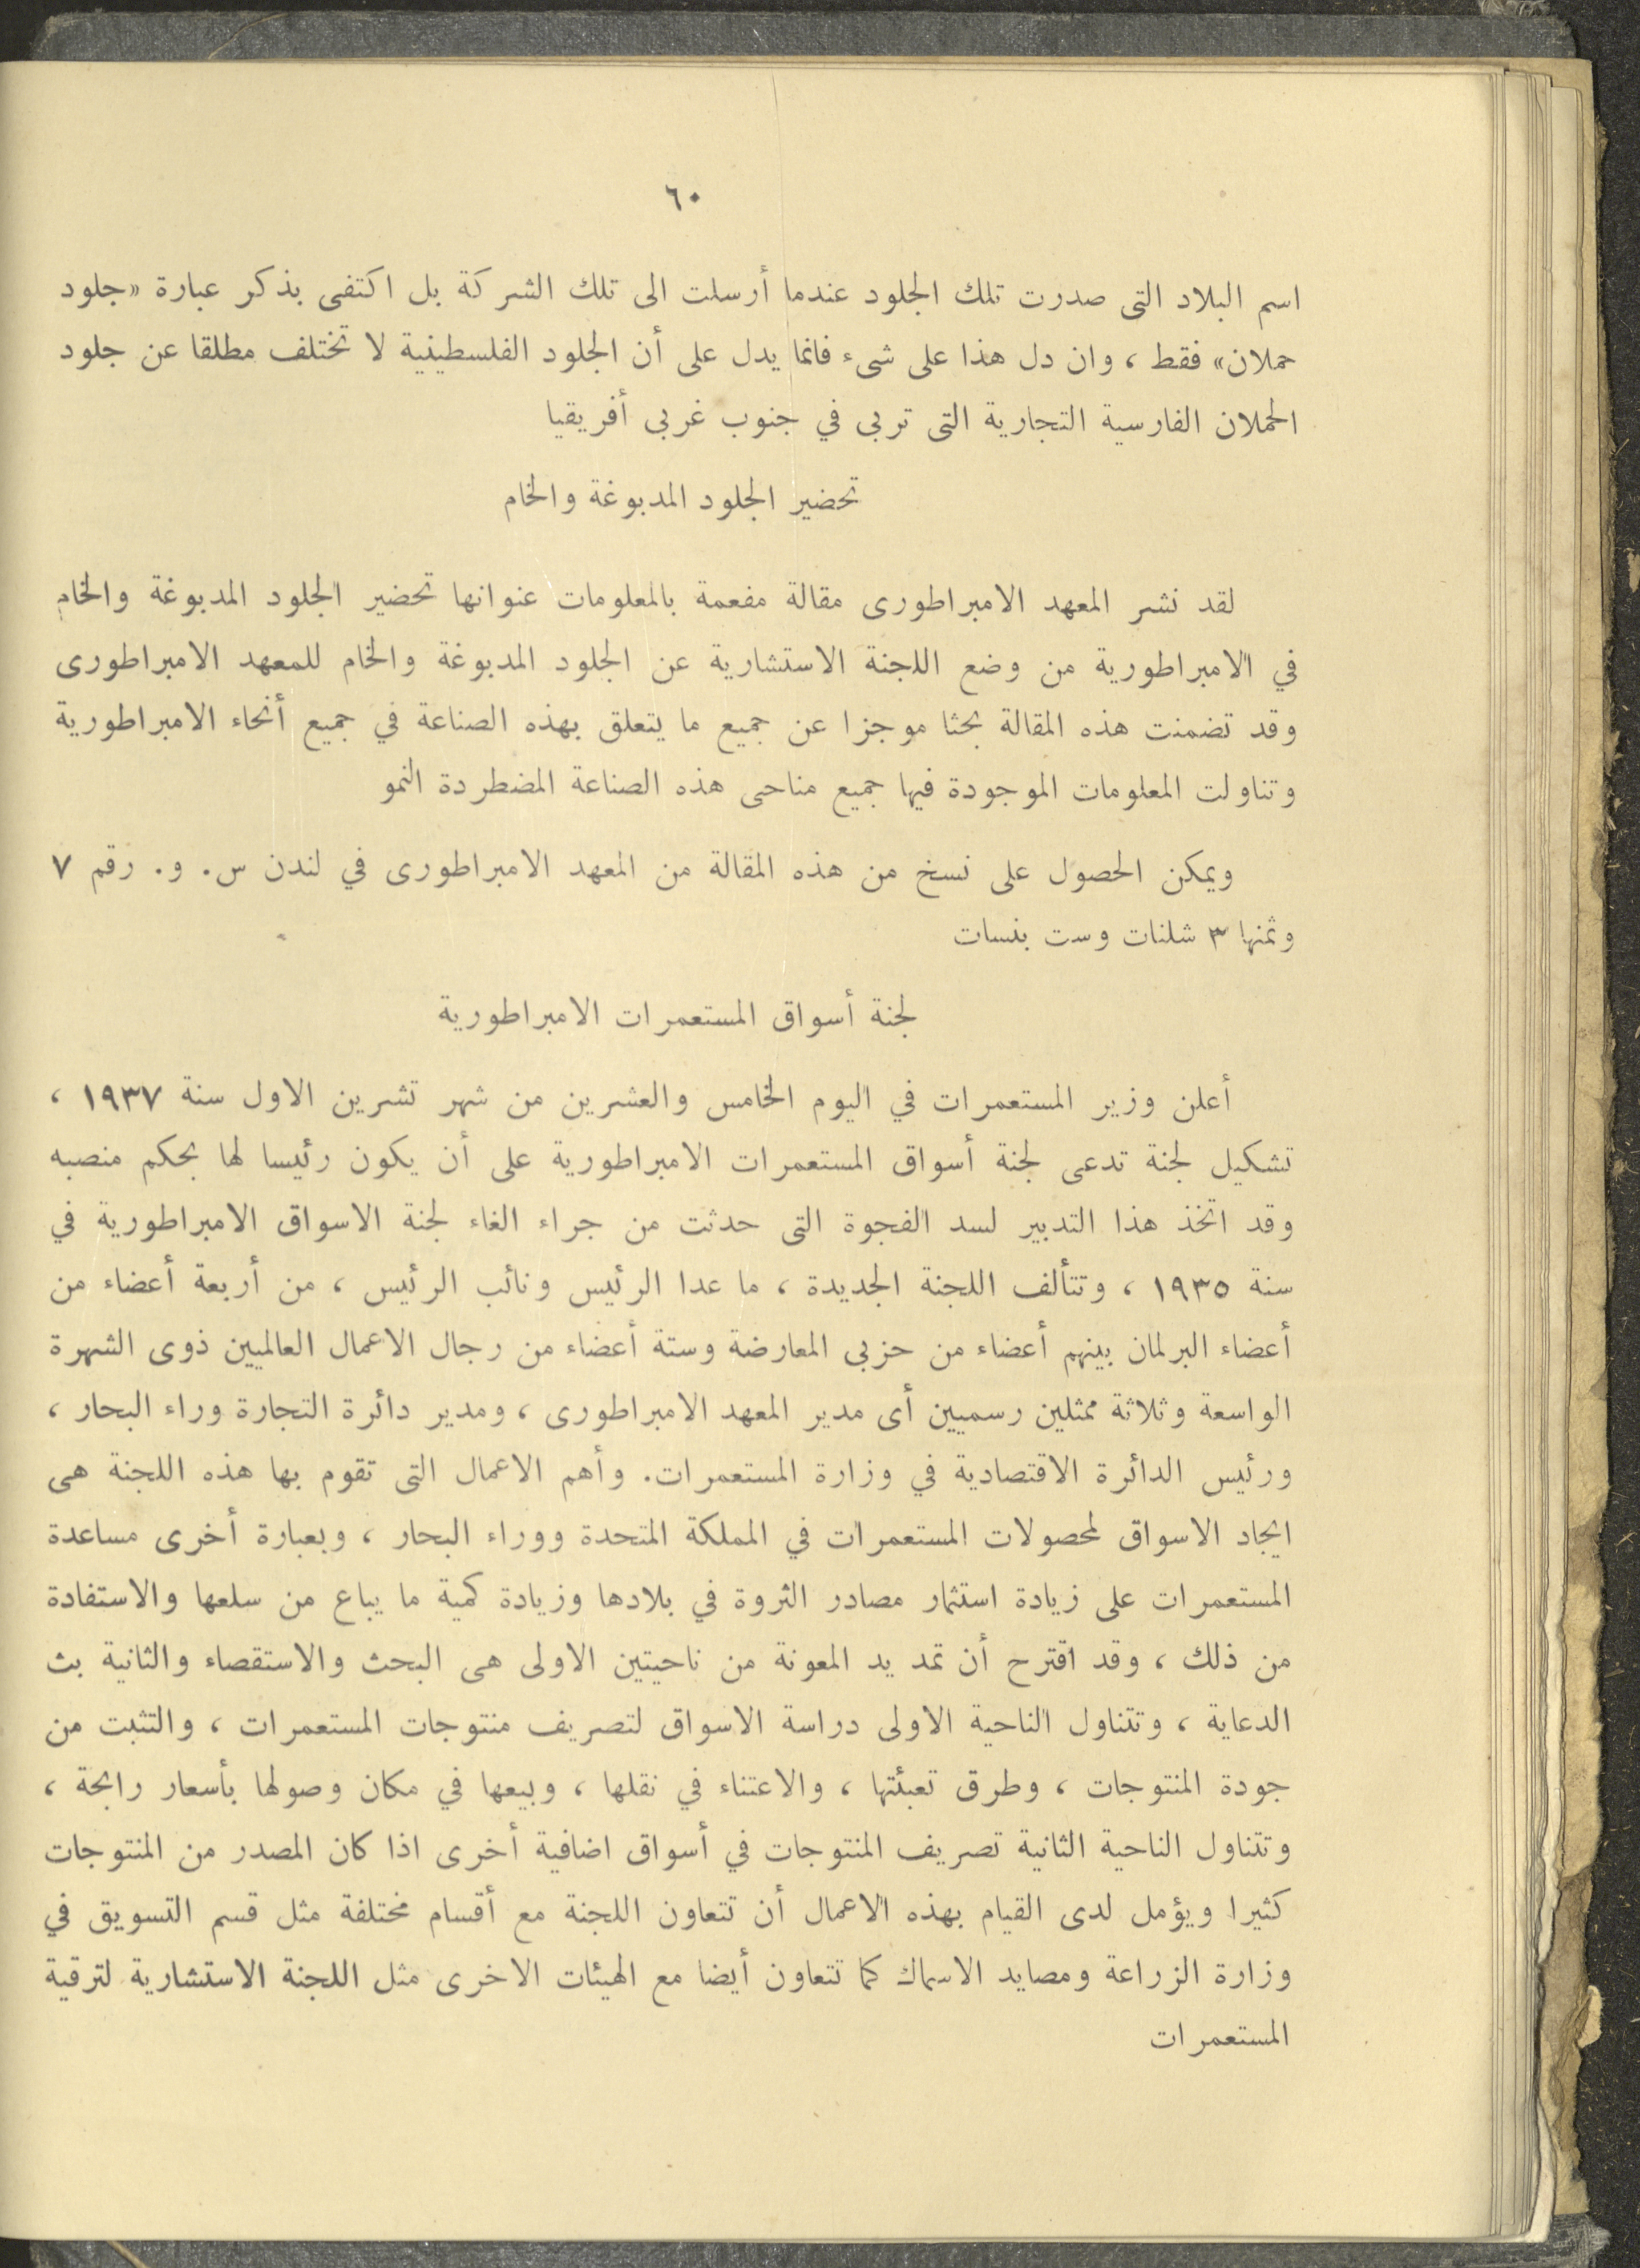 ٦٠
اسم البلاد التى صدرت تلك الجلود عندما أرسلت الى تلك الشركة بل اكتفى بذكر عبارة «جلود
حملان» فقط ، وان دل هذا على شىء فانما يدل على أن الجلود الفلسطينية لا تختلف مطلقا عن جلود
الحملان الفارسية التجارية التى تربى في جنوب غربى أفريقيا
تحضير الجلود المدبوغة والخام
لقد نشر المعهد الامبراطورى مقالة مفعمة بالمعلومات عنوانها تحضير الجلود المدبوغة والخام
في الامبراطورية من وضع اللجنة الاستشارية عن الجلود المدبوغة والخام للمعهد الامبراطورى
وقد تضمنت هذه المقالة بحثا موجزا عن جميع ما يتعلق بهذه الصناعة في جميع أنحاء الامبراطورية
وتناولت المعلومات الموجودة فيها جميع مناحى هذه الصناعة المضطردة النمو
ويمكن الحصول على نسخ من هذه المقالة من المعهد الامبراطورى في لندن س. و. رقم ٧
وثمنها ٣ شلنات وست بنسات
لجنة أسواق المستعمرات الامبراطورية
أعلن وزير المستعمرات في اليوم الخامس والعشرين من شهر تشرين الاول سنة ١٩٣٧ ،
تشكيل لجنة تدعى لجنة أسواق المستعمرات الامبراطورية على أن يكون رئيسا لها بحكم منصبه
وقد اتخذ هذا التدبير لسد الفجوة التى حدثت من جراء الغاء لجنة الاسواق الامبراطورية في
سنة ١٩٣٥ ، وتتألف اللجنة الجديدة ، ما عدا الرئيس ونائب الرئيس ، من أربعة أعضاء من
أعضاء البرلمان بينهم أعضاء من حزبى المعارضة وستة أعضاء من رجال الاعمال العالميين ذوى الشهرة
الواسعة وثلاثة ممثلين رسميين أى مدير المعهد الامبراطورى ، ومدير دائرة التجارة وراء البحار ،
ورئيس الدائرة الاقتصادية في وزارة المستعمرات. وأهم الاعمال التى تقوم بها هذه اللجنة هى
ايجاد الاسواق لمحصولات المستعمرات في المملكة المتحدة ووراء البحار ، وبعبارة أخرى مساعدة
المستعمرات على زيادة استثمار مصادر الثروة في بلادها وزيادة كمية ما يباع من سلعها والاستفادة
من ذلك ، وقد اقترح أن تمد يد المعونة من ناحيتين الاولى هى البحث والاستقصاء والثانية بث
الدعاية ، وتتناول الناحية الاولى دراسة الاسواق لتصريف منتوجات المستعمرات ، والتثبت من
جودة المنتوجات ، وطرق تعبئتها ، والاعتناء في نقلها ، وبيعها في مكان وصولها بأسعار رابحة ،
وتتناول الناحية الثانية تصريف المنتوجات في أسواق اضافية أخرى اذا كان المصدر من المنتوجات
كثيرا ويؤمل لدى القيام بهذه الاعمال أن تتعاون اللجنة مع أقسام مختلفة مثل قسم التسويق في
وزارة الزراعة ومصايد الاسماك كما تتعاون أيضا مع الهيئات الاخرى مثل اللجنة الاستشارية لترقية
المستعمرات